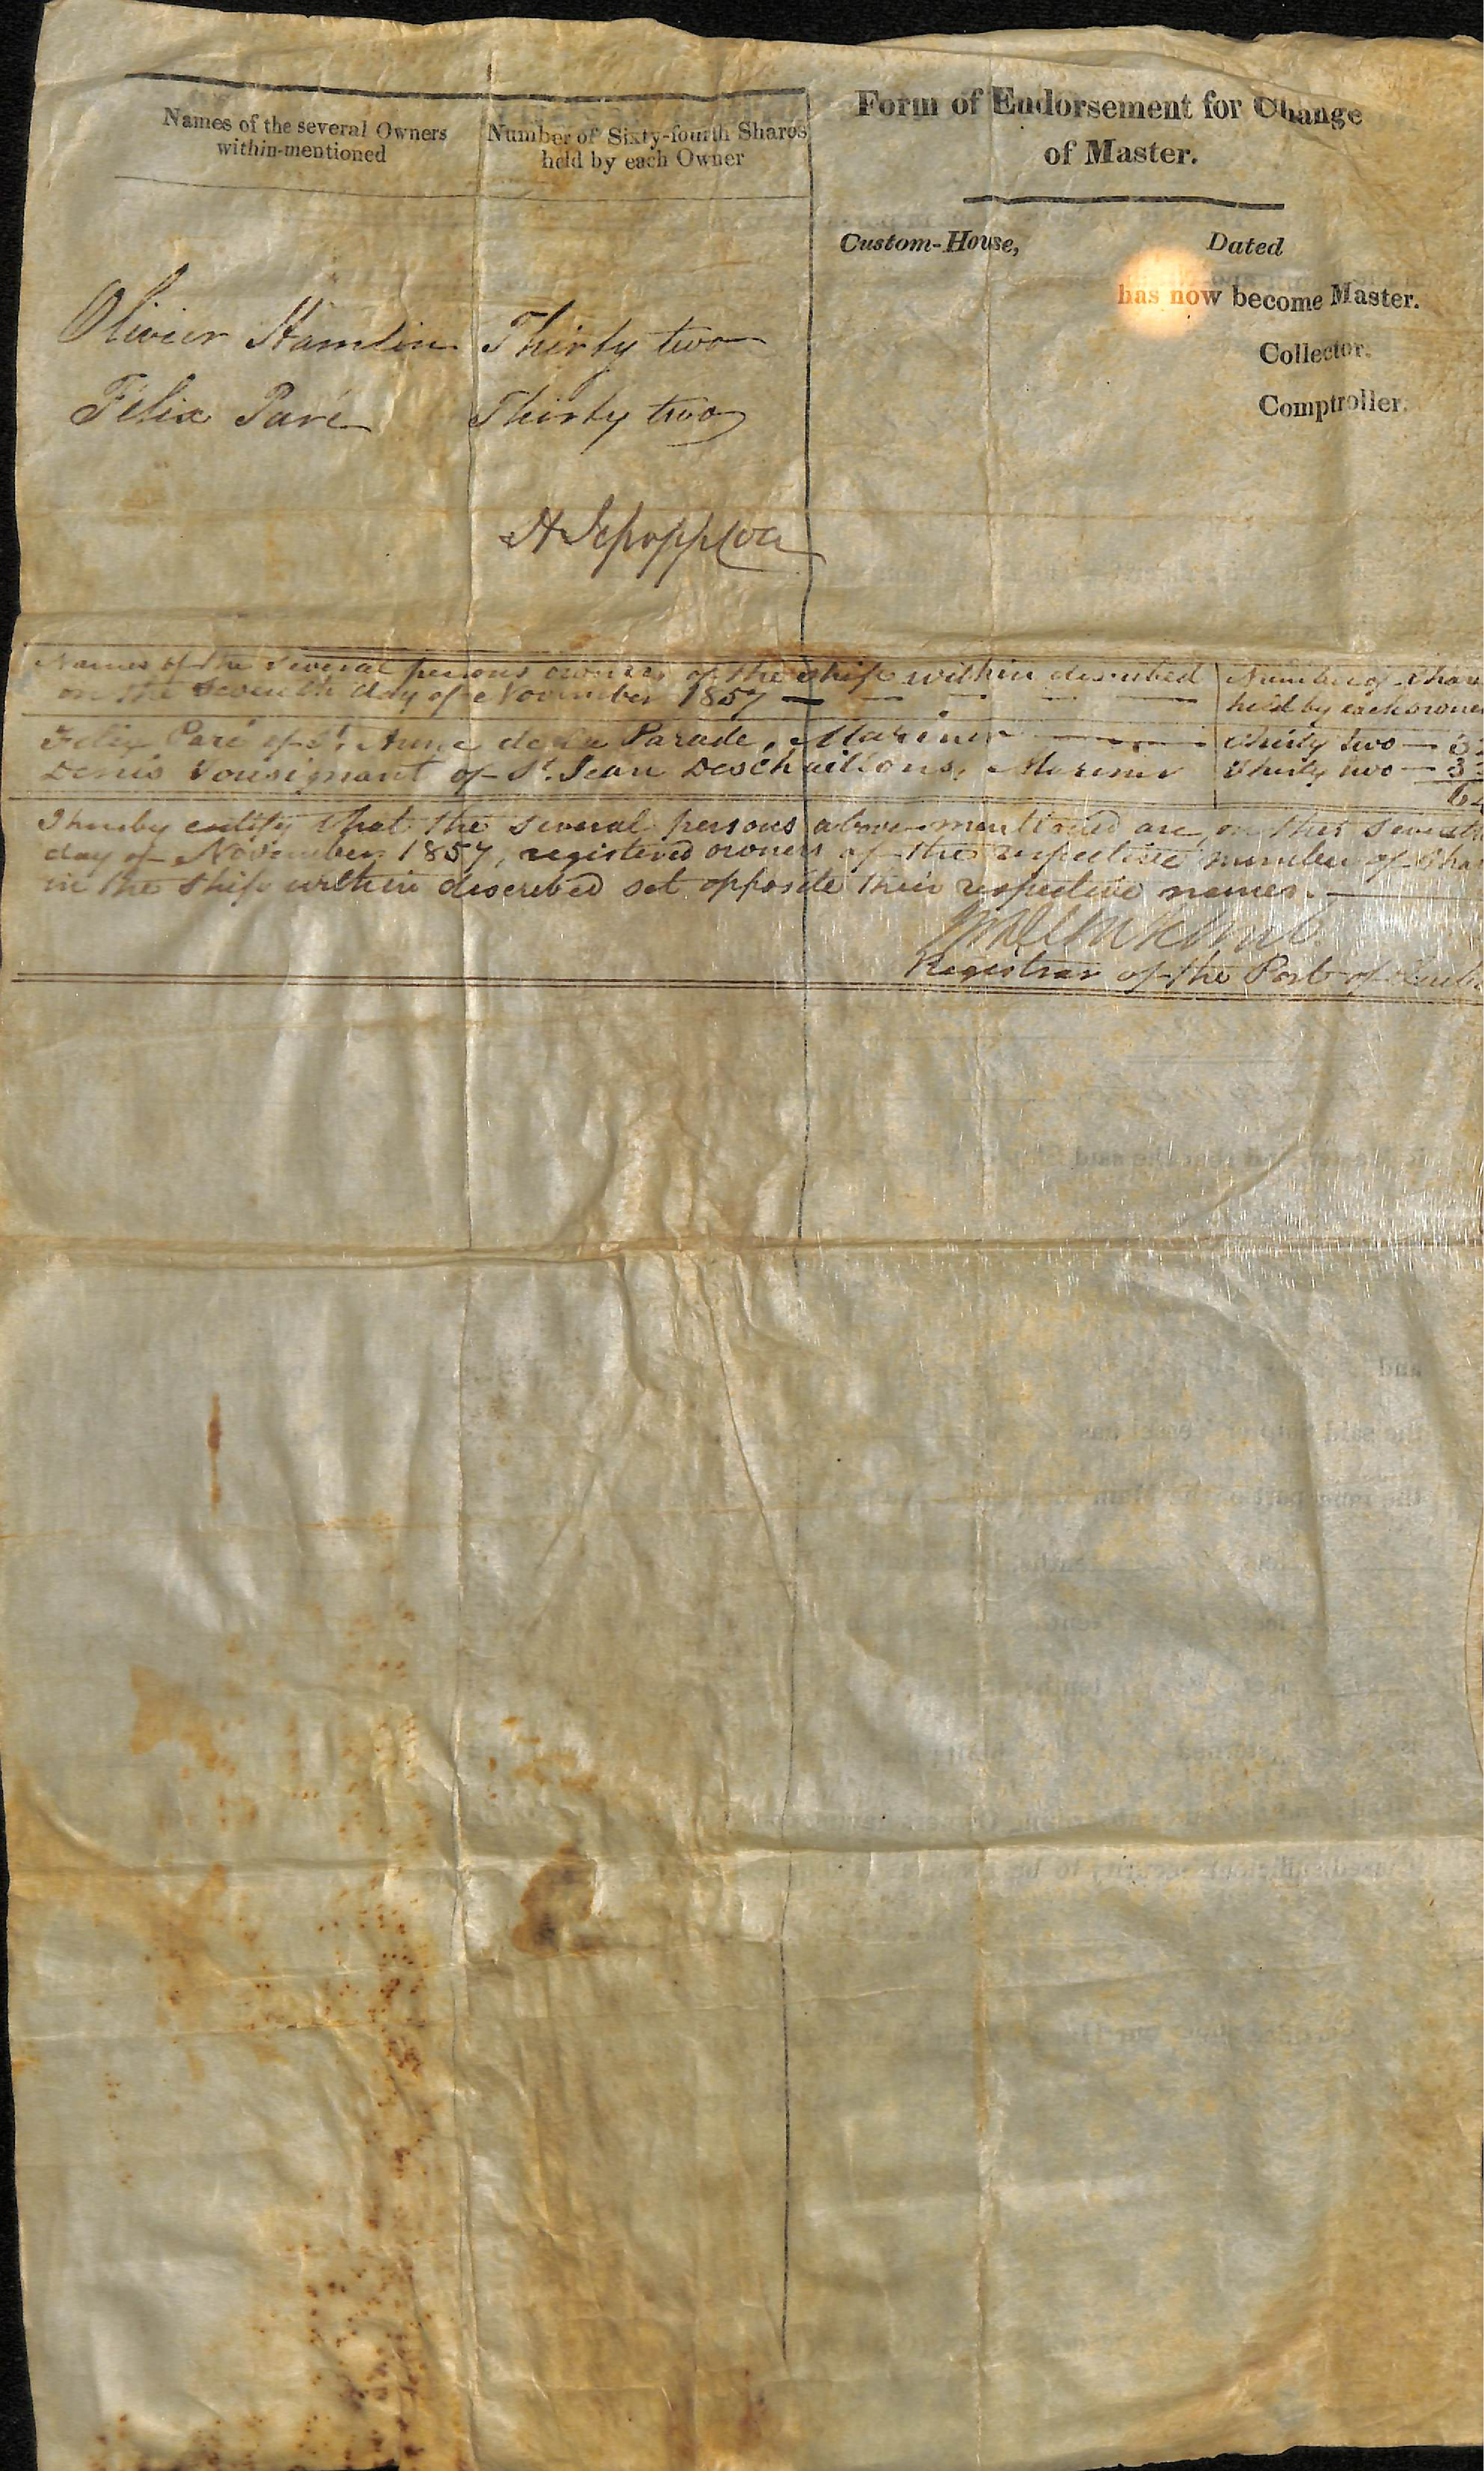 Names of the several Owners
within-mentioned
Number of Sixty-fourth Shares
held by each Owner
Olivier Hamelin Thirty two
Félix Paré Thirty two
Form of Endorsement for Change
of Master.
Custom-House, Dated
has now become Master.
Collector.
Comptroller.
Names of the several persons owners of the ship within described
on the seventh day of November 1857
Number of Shar
held by each owne
Felix Paré of St. Anne de la Parade, Mariner Thirty two — 3
Denis Tousignant of St. Jean Deschaillons, Mariner Thirty two — 3
64
I hereby certify that the several persons above-mentioned are, on this seventh
day of November 1857, registered owners of the respective number of Sha
in the Ship within described set opposite their respective names.
Registrar of the Port of Queb